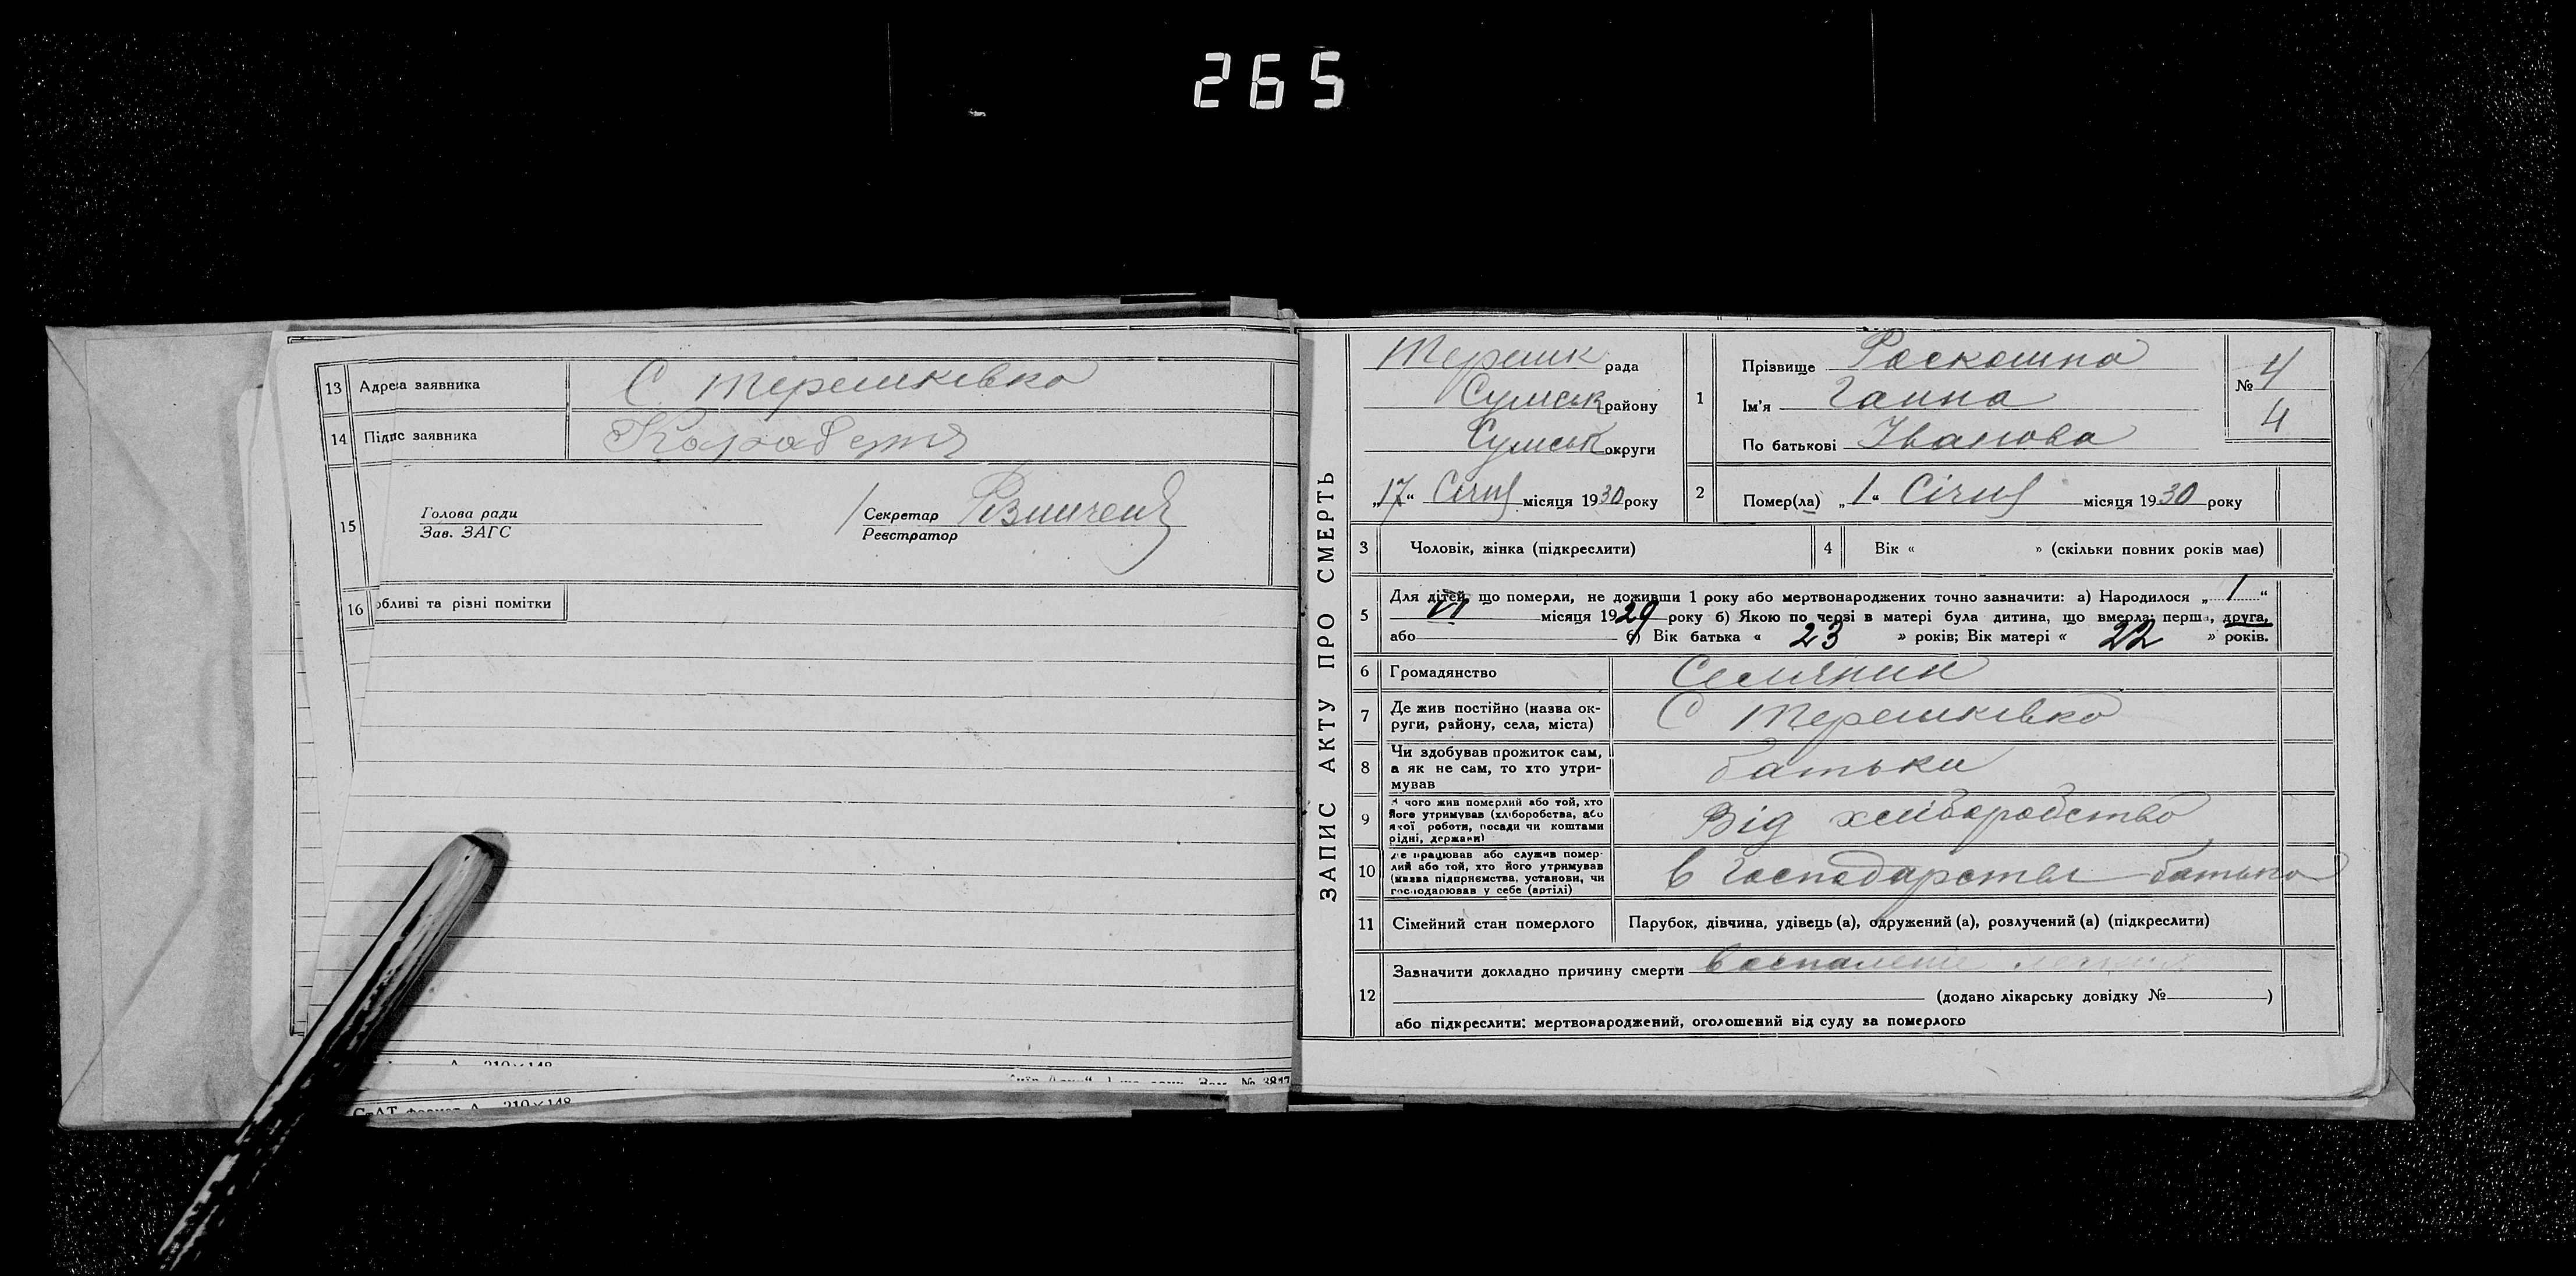 265
13 Адреса заявника С. Терешківка
14 Підпис заявника
15 Голова ради
Зав. ЗАГС
Секретар
Реєстратор
16 обливі та різні помітки
ЗАПИС АКТУ ПРО СМЕРТЬ
Терешк рада
Сумськ району
Сумськ округи
„17“ Січня місяця 1930 року
1 Прізвище Роскошна
Ім'я Ганна
По батькові Іванова
№ 4
4
2 Помер(ла) „1“ Січня місяця 1930 року
3 Чоловік, жінка (підкреслити)
4 Вік « » (скільки повних років має)
5 Для дітей, що померли, не доживши 1 року або мертвонароджених точно зазначити: а) Народилося „1“
VI місяця 1929 року б) Якою по черзі в матері була дитина, що вмерла: перша, друга,
або в) Вік батька « 23 » років; Вік матері « 22 » років.
6 Громадянство Селянин
7 Де жив постійно (назва ок-
руги, району, села, міста) С Терешківка
8 Чи здобував прожиток сам,
а як не сам, то хто утри-
мував батьки
9 З чого жив померлий або той, хто
його утримував (хліборобства, або
якої роботи, посади чи коштами
рідні, держави) Від хліборобство
10 Де працював або служив помер-
лий або той, хто його утримував
(назва підприємства, установи, чи
господарював у себе (артілі) в господарстві батька
11 Сімейний стан померлого Парубок, дівчина, удівець (а), одружений (а), розлучений (а) (підкреслити)
12 Зазначити докладно причину смерти Воспаление легких
(додано лікарську довідку № )
або підкреслити: мертвонароджений, оголошений від суду за померлого
А 210×148
№ 3817
формат А 210×148